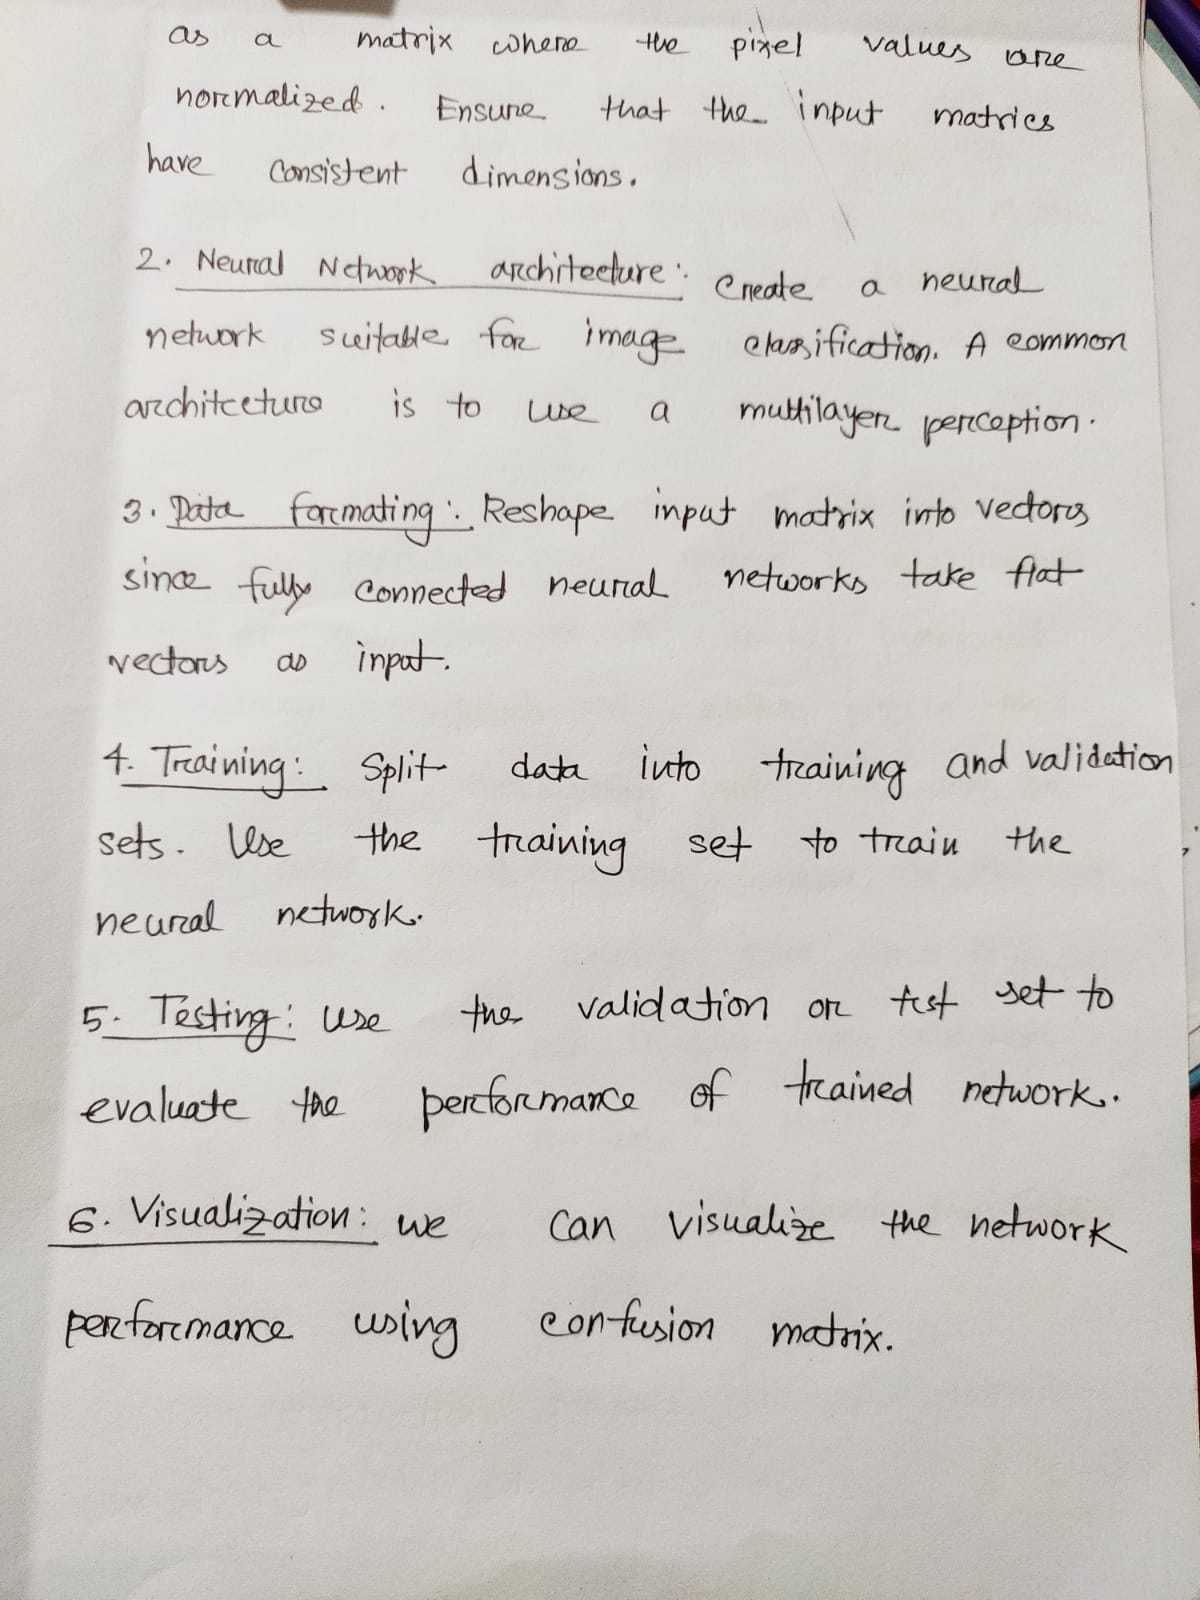 as a matrix where the pixel values are
normalized. Ensure that the input matrics
have consistent dimensions.
2. Neural Network architecture: Create a neural
network suitable for image classification. A common
architecture is to use a multilayer perception.
3. Data formating: Reshape input matrix into vectors
since fully connected neural networks take flat
vectors as input.
4. Training: Split data into training and validation
sets. Use the training set to train the
neural network.
5. Testing: Use the validation or test set to
evaluate the performance of trained network.
6. Visualization: we can visualize the network
performance using confusion matrix.